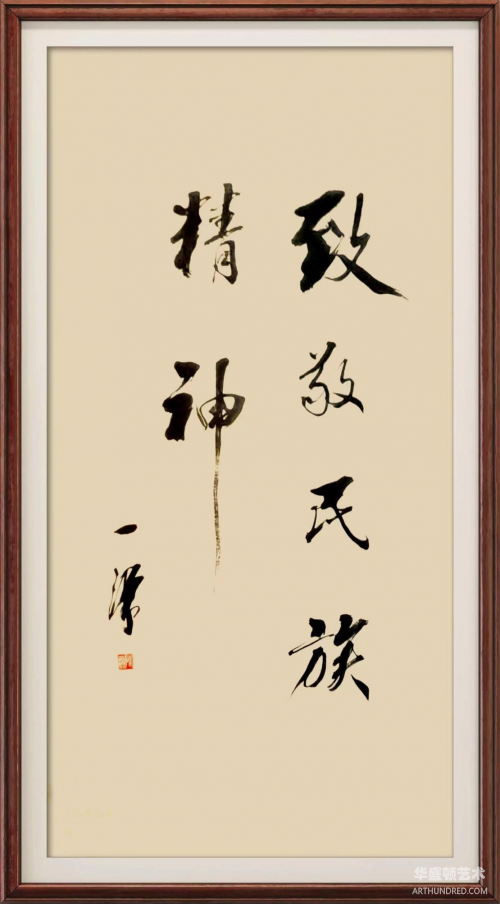 致敬民族
精神
一
华盛顿艺术
ARTHUNDRED.COM